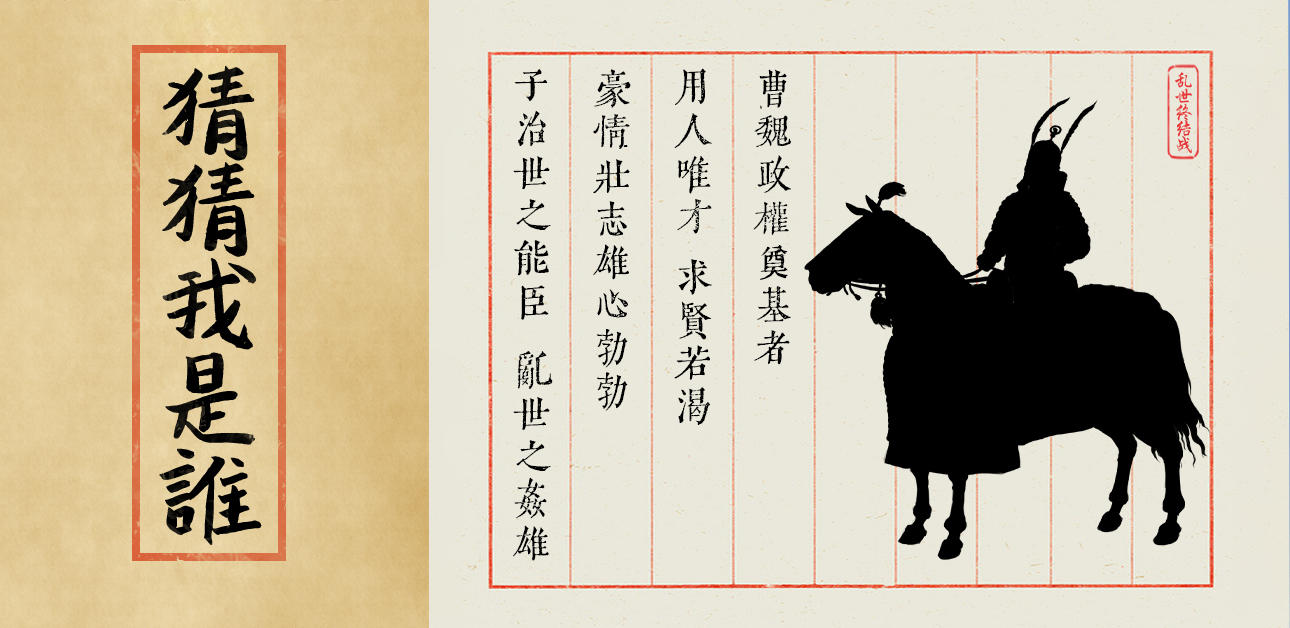 猜猜我是誰
乱世终结战
曹魏政權奠基者
用人唯才 求賢若渴
豪情壯志雄心勃勃
子治世之能臣 亂世之姦雄